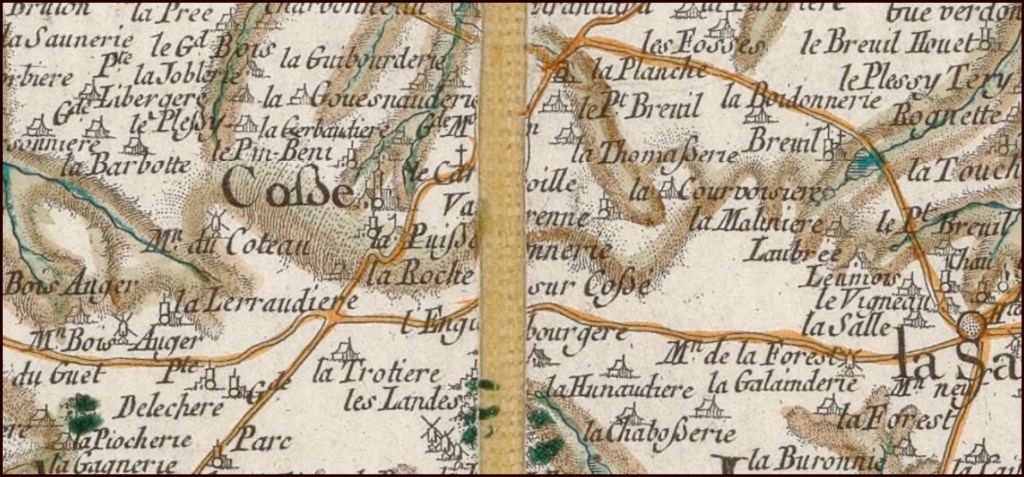 la Pree
la Saunerie
le Gd. Bois
la Guibourderie
les Fosses
le Breuil Houet
Pte. la Joblerie
la Planche
le Plessy Tery
Gde. Libergere
la Gouesnauderie
le Pt. Breuil
la Boidonnerie
Roguette
le Plessy
la Gerbaudiere
Gde. Mn.
Breuil
la Barbotte
le Pin-Beni
la Thomaßerie
la Touch
Coßé
le Car
oille
la Courvoisiere
Va
renne
la Maliniere
le Pt. Breuil
Mn. du Coteau
la Puißé
nnerie
Laubrée
Chau
Bois Anger
la Roche
sur Coßé
le Vigneau
la Lerraudiere
l'Engu
bourgere
la Salle
Mn. Bois Auger
Mn. de la Forest
la Sa
du Guet
Pte.
Gde.
la Trotiere
la Hunaudiere
la Galainderie
Mn. neuf
Delechere
les Landes
la Forest
la Piocherie
Parc
la Chaboßerie
la Gagnerie
la Buronnie